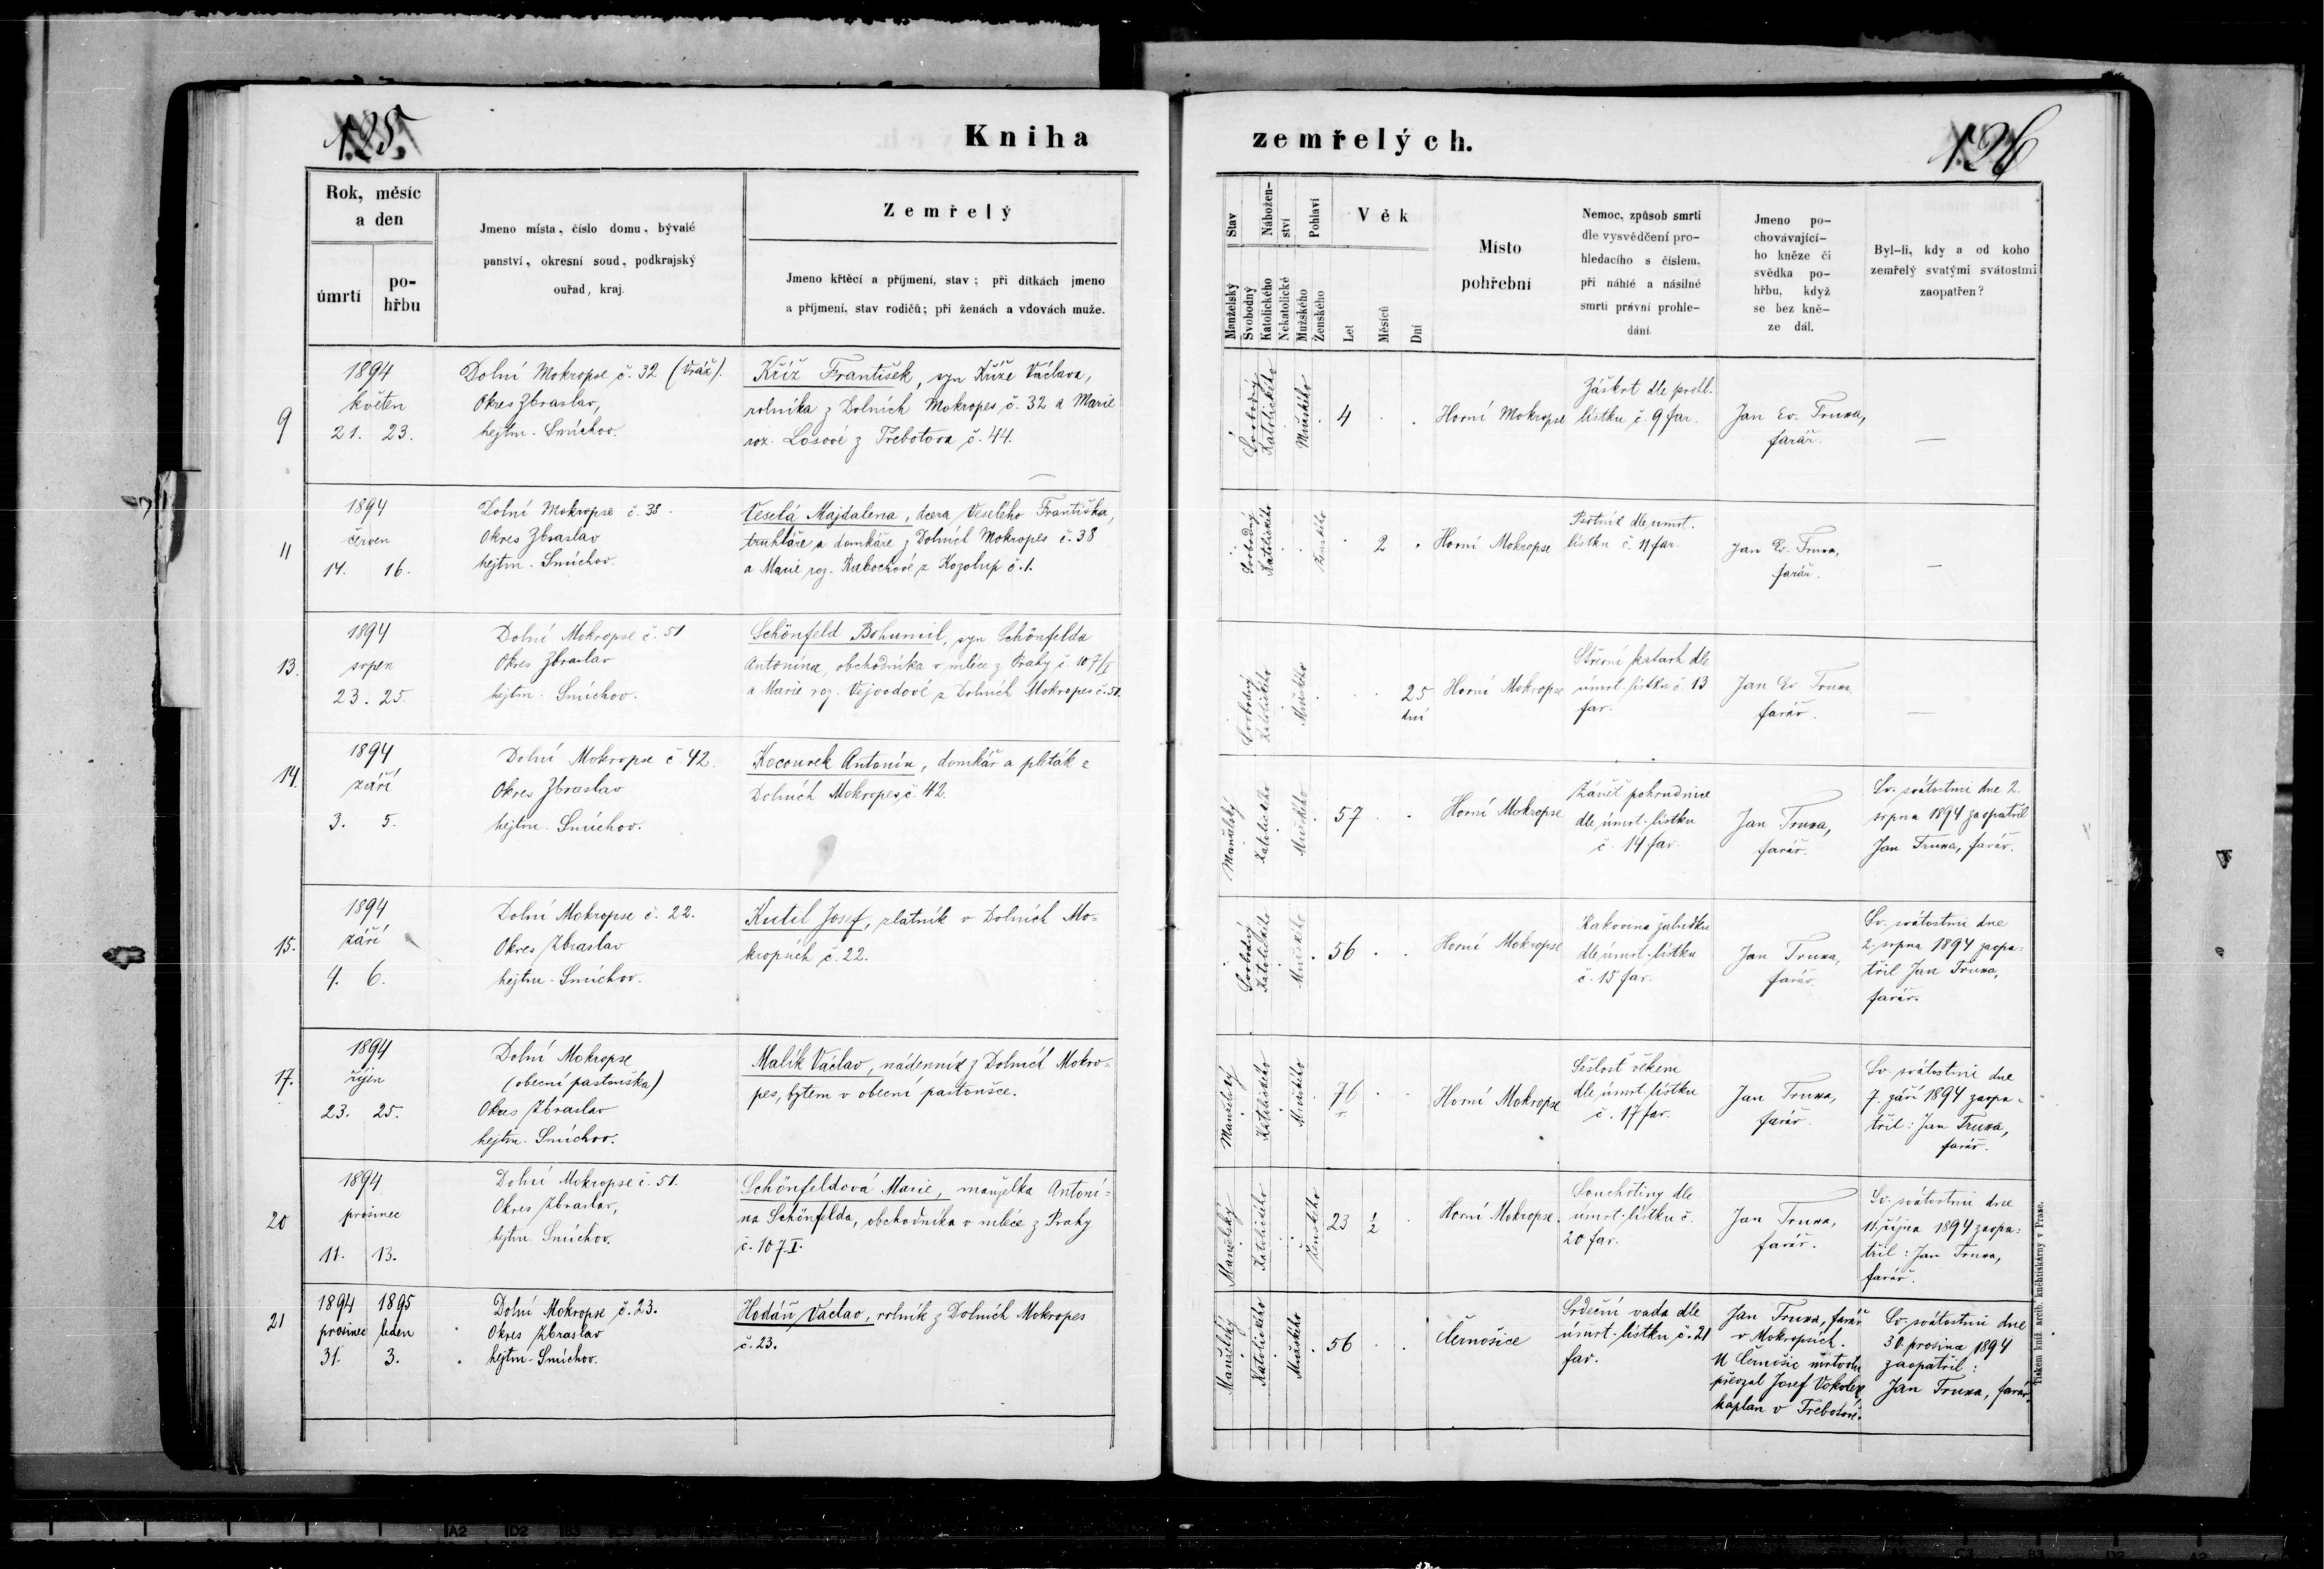 125.
Kniha
Rok, měsíc
a den
úmrtí
po-
hřbu
Jmeno místa, číslo domu, bývalé
panství, okresní soud, podkrajský
ouřad, kraj.
Zemřelý
Jmeno křtěcí a příjmení, stav; při dítkách jmeno
a příjmení, stav rodičů; při ženách a vdovách muže.
9
1894
květen
21. 23.
Dolní Mokropse č. 32 (Vráž).
Okres Zbraslav,
hejtm. Smíchov.
Kříž František, syn Kříže Václava,
rolníka z Dolních Mokropes č. 32 a Marie
roz. Losové z Třebotova č. 44.
11
1894
červen
14. 16.
Dolní Mokropse č. 38
Okres Zbraslav
hejtm. Smíchov.
Veselá Majdalena, dcera Veselého Františka,
truhláře a domkáře z Dolních Mokropes č. 38
a Marie roz. Kubochové z Kozolup č. 1.
13.
1894
srpen
23. 25.
Dolní Mokropse č. 51
Okres Zbraslav
hejtm. Smíchov.
Schönfeld Bohumil, syn Schönfelda
Antonína, obchodníka v mléce z Prahy č. 107/I
a Marie roz. Vejvodové z Dolních Mokropes č. 51.
14.
1894
září
3. 5.
Dolní Mokropse č. 42
Okres Zbraslav
hejtm. Smíchov.
Kocourek Antonín, domkář a pleták z
Dolních Mokropes č. 42.
15.
1894
září
4. 6.
Dolní Mokropse č. 22.
Okres Zbraslav
hejtm. Smíchov.
Kutil Josef, zlatník v Dolních Mo-
kropsích č. 22.
17.
1894
říjen
23. 25.
Dolní Mokropse
(obecní pastouška)
Okres Zbraslav
hejtm. Smíchov.
Malík Václav, nádenník z Dolních Mokro-
pes, bytem v obecní pastoušce.
20
1894
prosinec
11. 13.
Dolní Mokropse č. 51.
Okres Zbraslav,
hejtm. Smíchov.
Schönfeldová Marie, manželka Antoní-
na Schönfelda, obchodníka v mléce z Prahy
č. 107.I.
21
1894 1895
prosinec leden
31. 3.
Dolní Mokropse č. 23.
Okres Zbraslav
hejtm. Smíchov.
Hodáň Václav, rolník z Dolních Mokropes
č. 23.
zemřelých.
126
Stav
Manželský
Svobodný
Nábožen-
ství
Katolického
Nekatolické
Pohlaví
Mužského
Ženského
Věk
Let
Měsíců
Dní
Místo
pohřební
Nemoc, způsob smrti
dle vysvědčení pro-
hledacího s číslem,
při náhlé a násilné
smrti právní prohle-
dání.
Jmeno po-
chovávající-
ho kněze či
svědka po-
hřbu, když
se bez kně-
ze dál.
Byl-li, kdy a od koho
zemřelý svatými svátostmi
zaopatřen?
Svobodný
Katolického
Mužského
4
Horní Mokropse
Záškrt dle prohl.
lístku č. 9 far.
Jan Ev. Truxa,
farář.
—
Svobodný
Katolického
Ženského
2
Horní Mokropse
Psotník dle úmrt.
lístku č. 11 far.
Jan Ev. Truxa,
farář.
—
Svobodný
Katolického
Mužského
25
dní
Horní Mokropse
Střevní katarh dle
úmrt. lístku č. 13
far.
Jan Ev. Truxa,
farář.
—
Manželský
Katolického
Mužského
57
Horní Mokropse
Zánět pohrudnice
dle úmrt. lístku
č. 14 far.
Jan Truxa,
farář.
Sv. svátostmi dne 2.
srpna 1894 zaopatřil
Jan Truxa, farář.
Svobodný
Katolického
Mužského
56
Horní Mokropse
Rakovina žaludku
dle úmrt. lístku
č. 15 far.
Jan Truxa,
farář.
Sv. svátostmi dne
2. srpna 1894 zaopa-
třil Jan Truxa,
farář.
Manželský
Katolického
Mužského
76
r.
Horní Mokropse
Sešlost věkem
dle úmrt. lístku
č. 17 far.
Jan Truxa,
farář.
Sv. svátostmi dne
7. září 1894 zaopa-
třil: Jan Truxa,
farář.
Manželský
Katolického
Ženského
23 1/2
Horní Mokropse.
Souchotiny dle
úmrt. lístku č.
20 far.
Jan Truxa,
farář.
Sv. svátostmi dne
11. října 1894 zaopa-
třil: Jan Truxa,
farář.
Manželský
Katolického
Mužského
56
Černošice
Srdeční vada dle
úmrt. lístku č. 21
far.
Jan Truxa, farář
v Mokropsích.
U Černošic mrtvolu
převzal Josef Vokolek,
kaplan v Třebotově.
Sv. svátostmi dne
30. prosince 1894
zaopatřil:
Jan Truxa, farář.
Tiskem kníž. arcib. knihtiskárny v Praze.